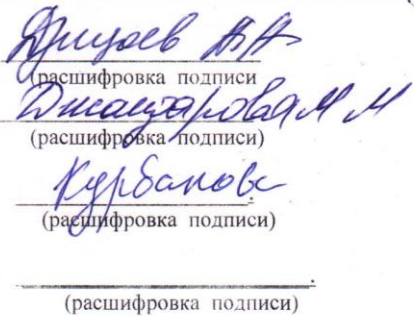 (расшифровка подписи
М М
(расшифровка подписи)
Курбанов
(расшифровка подписи)
(расшифровка подписи)